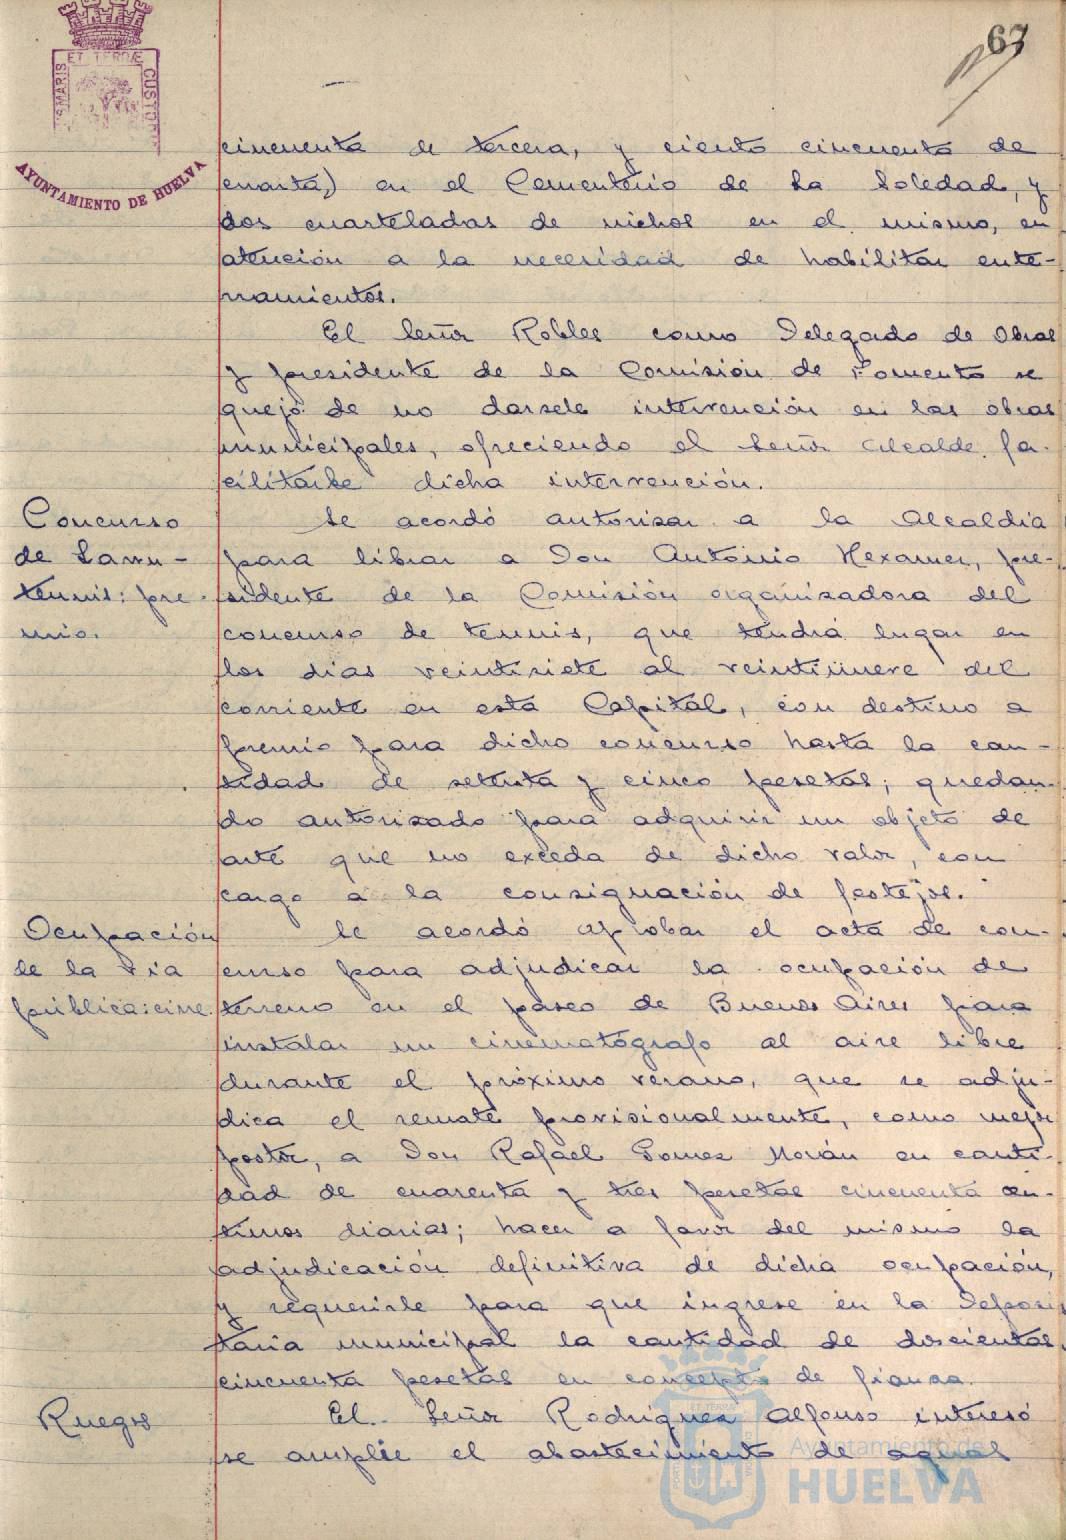 67
ET TERRÆ
MARIS
CUSTODIA
AYUNTAMIENTO DE HUELVA
cincuenta de tercera, y ciento cincuenta de
cuarta) en el Cementerio de La Soledad, y
dos cuarteladas de nichos en el mismo, en
atención a la necesidad de habilitar ente-
rramientos.
El Señor Robles como Delegado de Obras
y presidente de la Comisión de Fomento se
quejó de no darsele intervención en las obras
municipales, ofreciendo el Señor Alcalde fa-
cilitarle dicha intervención.
Concurso
de Lawn-
tennis: pre-
mio.
Se acordó autorizar a la Alcaldía
para librar a Don Antonio Hexamer, pre-
sidente de la Comisión organizadora del
concurso de tennis, que tendrá lugar en
los dias veintisiete al veintinueve del
corriente en esta Capital, con destino a
premio para dicho concurso hasta la can-
tidad de setenta y cinco pesetas; quedan-
do autorizado para adquirir un objeto de
arte que no exceda de dicho valor, con
cargo a la consignación de festejos.
Ocupación
de la vía
pública: cine.
Se acordó aprobar el acta de con-
curso para adjudicar la ocupación de
terreno en el paseo de Buenos Aires para
instalar un cinematógrafo al aire libre
durante el próximo verano, que se adju-
dica el remate provisionalmente, como mejor
postor, a Don Rafael Gomez Morán en canti-
dad de cuarenta y tres pesetas cincuenta cen-
timos diarias; hacer a favor del mismo la
adjudicación definitiva de dicha ocupación,
y requerirle para que ingrese en la Deposi-
taria municipal la cantidad de doscientas
cincuenta pesetas en concepto de fianza.
Ruegos
El Señor Rodriguez Alfonso interesó
se amplíe el abastecimiento de aguas
Ayuntamiento de
HUELVA